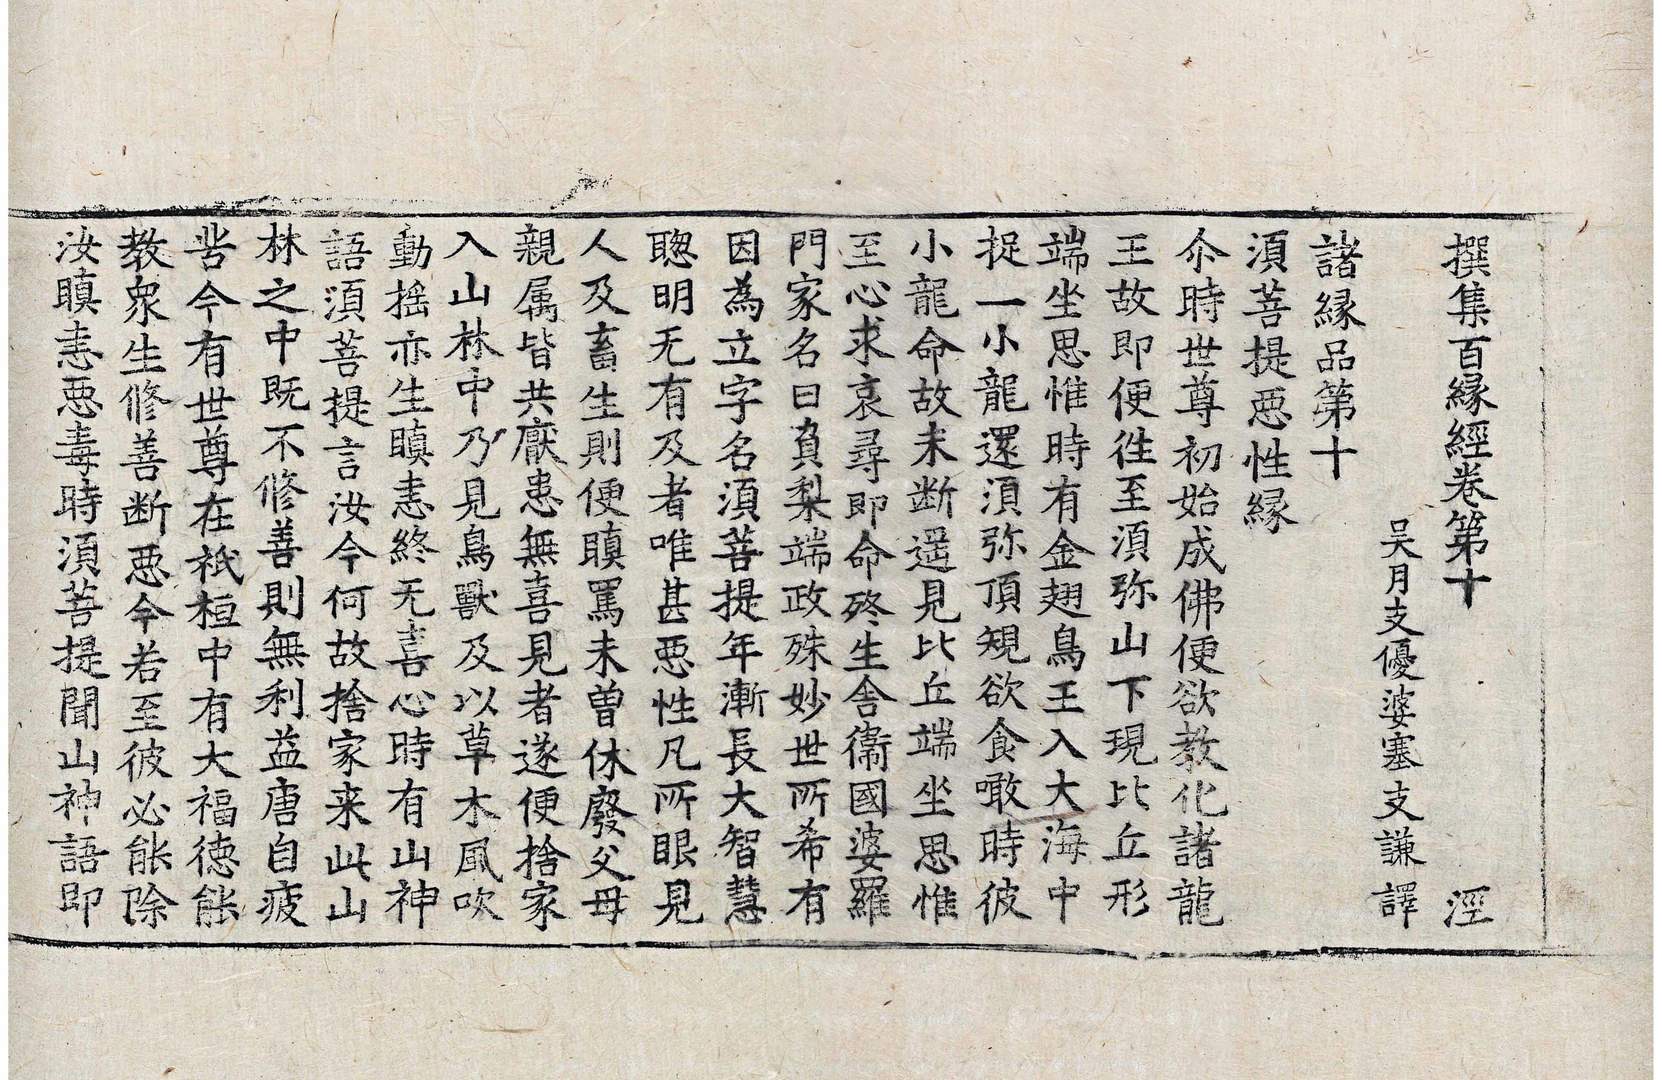 撰集百縁經卷第十 涇
吴月支優婆塞支謙譯
諸縁品第十
須菩提惡性縁
尒時世尊初始成佛便欲教化諸龍
王故即便徃至須弥山下現比丘形
端坐思惟時有金翅鳥王入大海中
捉一小龍還須弥頂規欲食噉時彼
小龍命故未断遥見比丘端坐思惟
至心求哀尋即命終生舎衞國婆羅
門家名曰負梨端政殊妙世所希有
因為立字名須菩提年漸長大智慧
聦明无有及者唯甚惡性凡所眼見
人及畜生則便瞋罵未曽休廢父母
親属皆共厭患無喜見者遂便捨家
入山林中乃見鳥獸及以草木風吹
動揺亦生瞋恚終无喜心時有山神
語須菩提言汝今何故捨家来此山
林之中既不修善則無利益唐自疲
苦今有世尊在祇桓中有大福徳能
教衆生修善断惡今若至彼必能除
汝瞋恚惡毒時須菩提聞山神語即